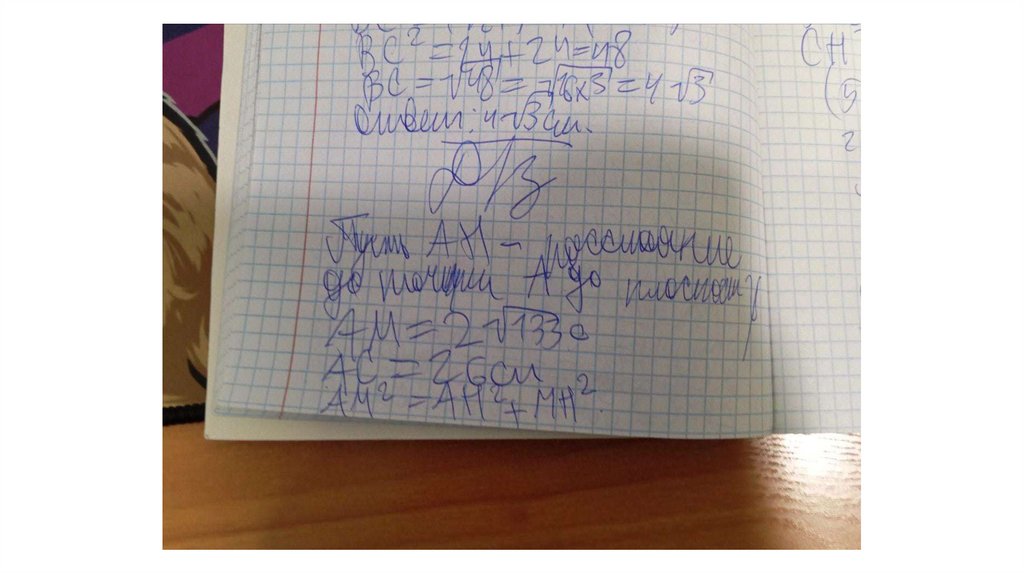 BC² = 24 + 24 = 48
CH
BC = √48 = √16×3 = 4√3
(5
Ответ: 4√3 см.
2
Д/з
Пусть AH – расстояние
до точки A до плоскости γ
AM = 2√133 с
AC = 26 см
AM² = AH² + MH².